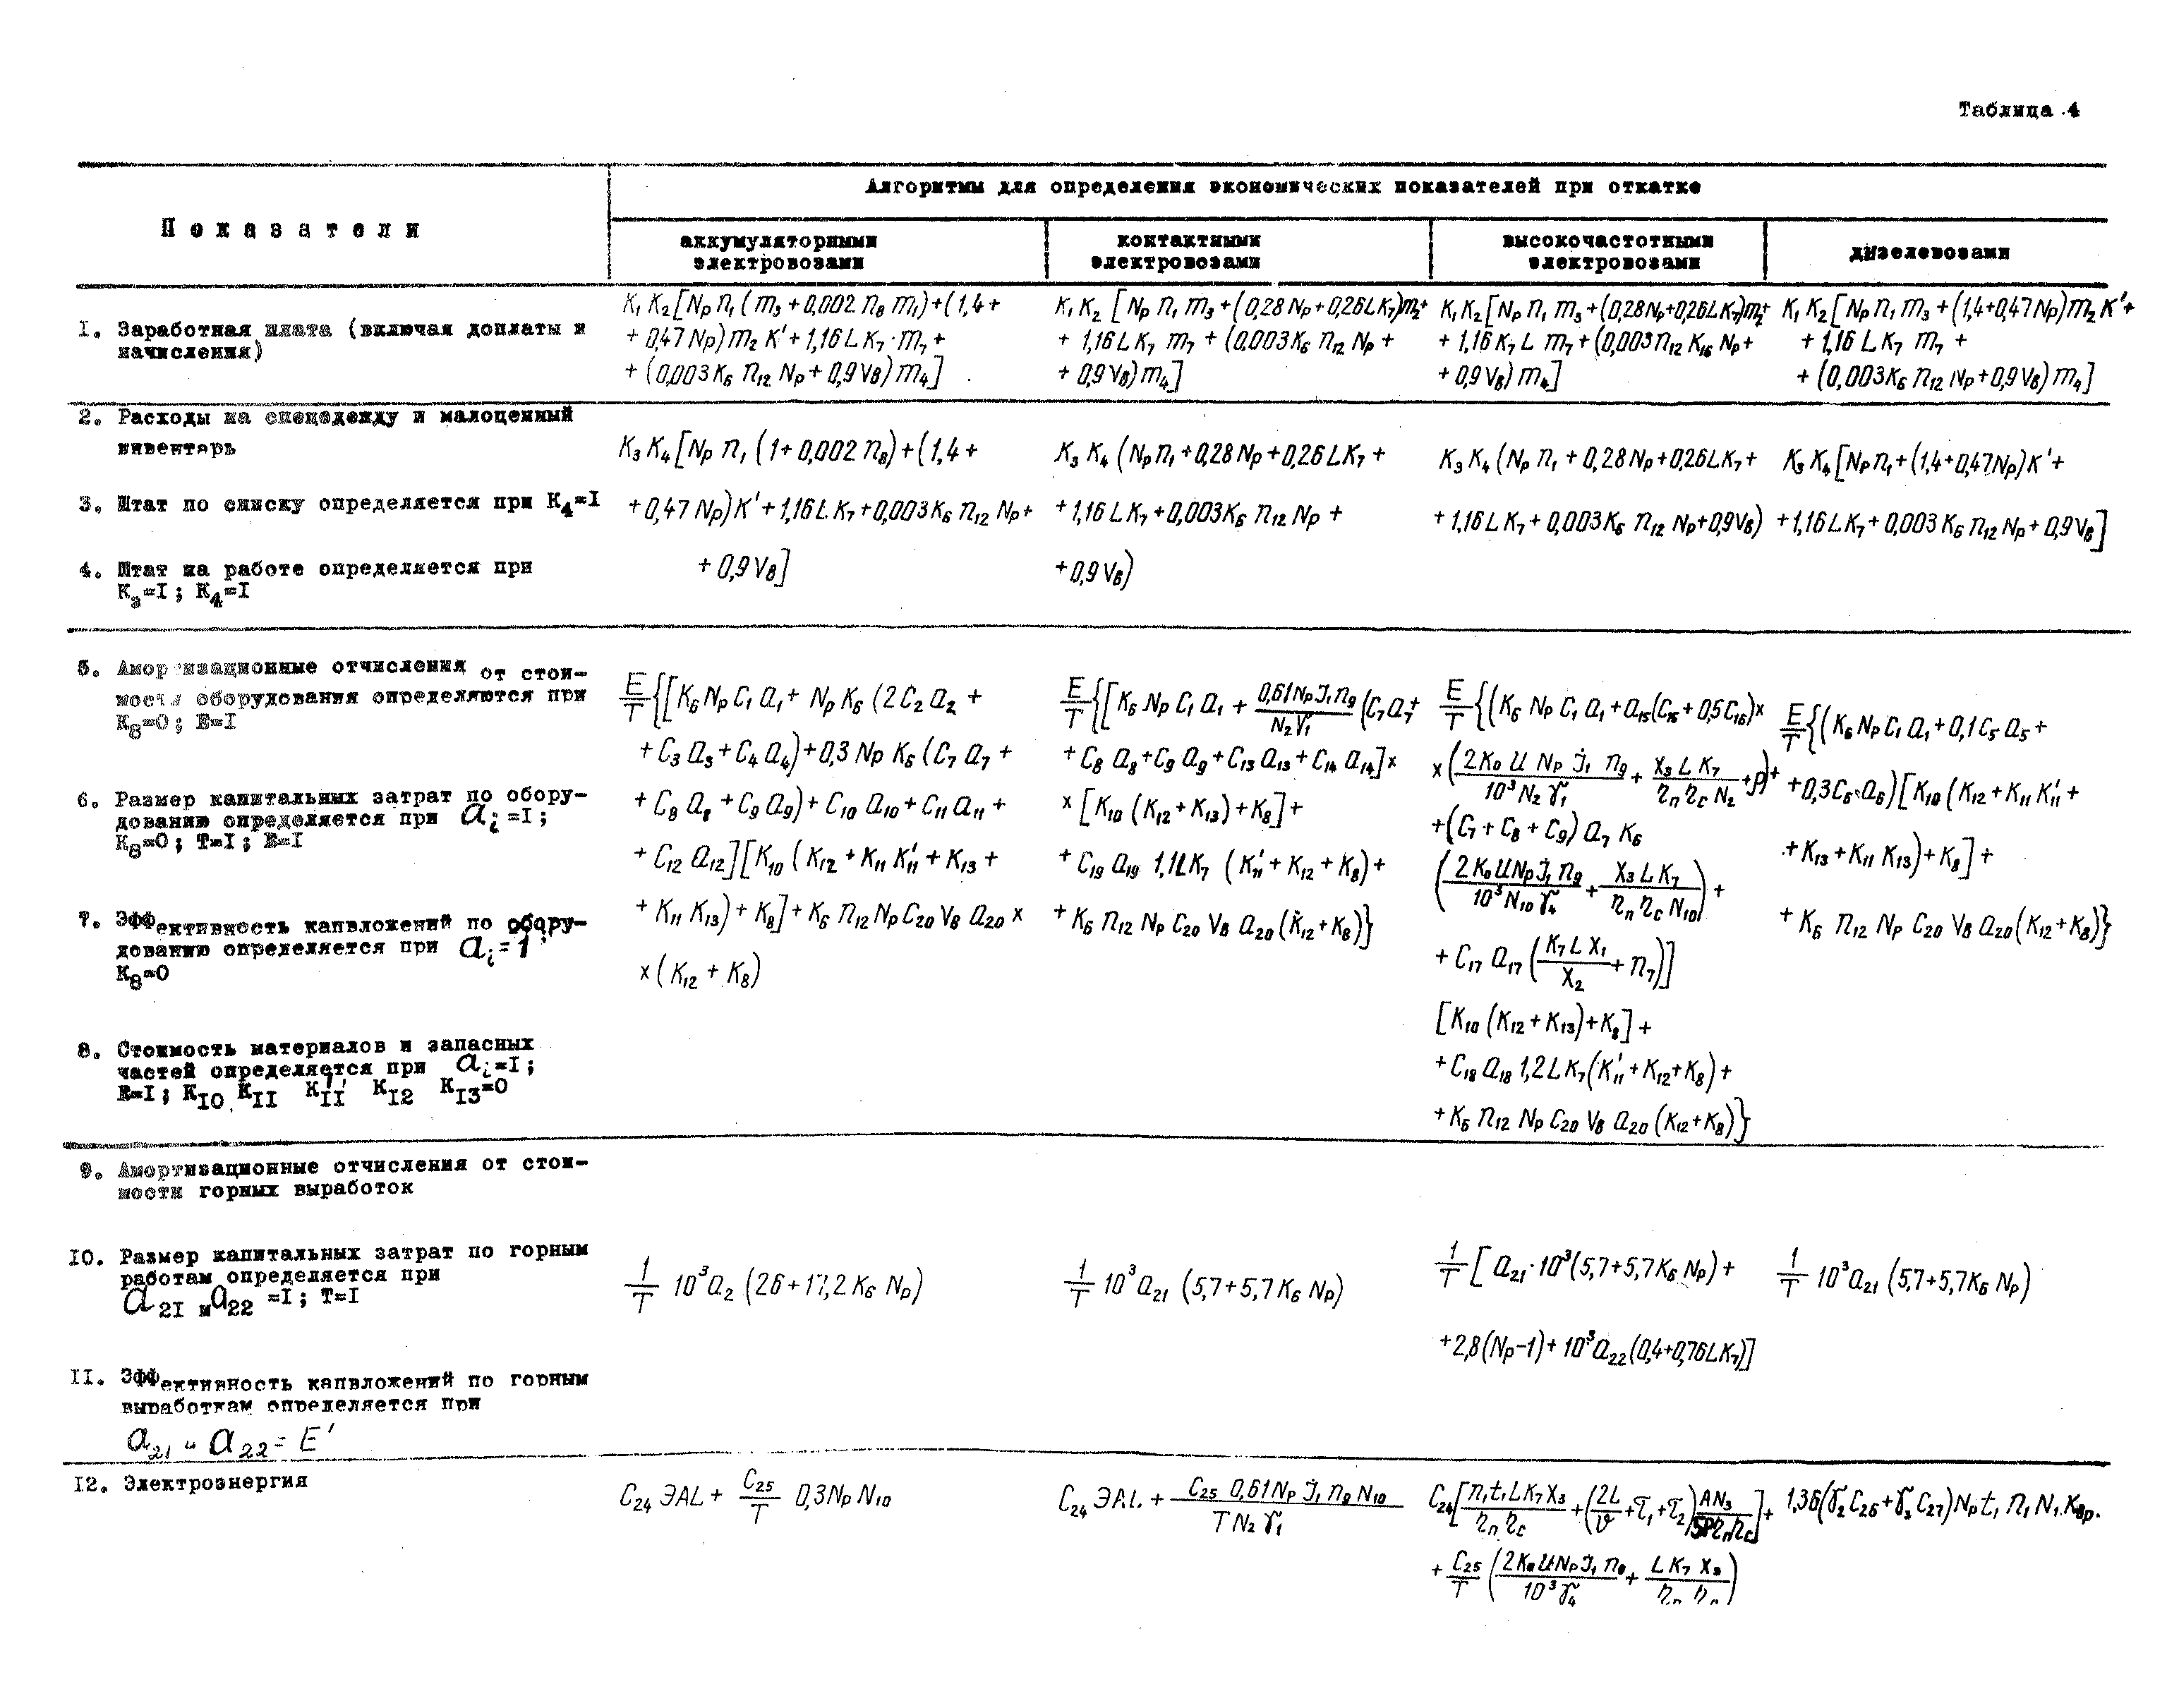 Таблица 4
Показатели
Алгоритмы для определения экономических показателей при откатке
аккумуляторными электровозами
контактными электровозами
высокочастотными электровозами
дизелевозами
1. Заработная плата (включая доплаты и
начисления)
K₁ K₂ [Nр n₁ (m₃ + 0,002 n₈ m₁) + (1,4 +
+ 0,47 Nр) m₂ K' + 1,16 L K₇ · m₇ +
+ (0,003 K₆ n₁₂ Nр + 0,9 V₈) m₄]
K₁ K₂ [Nр n₁ m₃ + (0,28 Nр + 0,26 L K₇) m₂ +
+ 1,16 L K₇ m₇ + (0,003 K₆ n₁₂ Nр +
+ 0,9 V₈) m₄]
K₁ K₂ [Nр n₁ m₃ + (0,28 Nр + 0,26 L K₇) m₂ +
+ 1,16 K₇ L m₇ + (0,003 n₁₂ K₁₆ Nр +
+ 0,9 V₈) m₄]
K₁ K₂ [Nр n₁ m₃ + (1,4 + 0,47 Nр) m₂ K' +
+ 1,16 L K₇ m₇ +
+ (0,003 K₆ n₁₂ Nр + 0,9 V₈) m₄]
2. Расходы на спецодежду и малоценный
инвентарь
3. Штат по списку определяется при K₄=I
4. Штат на работе определяется при
K₃=I; K₄=I
K₃ K₄ [Nр n₁ (1 + 0,002 n₈) + (1,4 +
+ 0,47 Nр) K' + 1,16 L K₇ + 0,003 K₆ n₁₂ Nр +
+ 0,9 V₈]
K₃ K₄ (Nр n₁ + 0,28 Nр + 0,26 L K₇ +
+ 1,16 L K₇ + 0,003 K₆ n₁₂ Nр +
+ 0,9 V₈)
K₃ K₄ (Nр n₁ + 0,28 Nр + 0,26 L K₇ +
+ 1,16 L K₇ + 0,003 K₆ n₁₂ Nр + 0,9 V₈)
K₃ K₄ [Nр n₁ + (1,4 + 0,47 Nр) K' +
+ 1,16 L K₇ + 0,003 K₆ n₁₂ Nр + 0,9 V₈]
5. Амортизационные отчисления от стои-
мости оборудования определяются при
K₈=0; E=I
6. Размер капитальных затрат по обору-
дованию определяется при aᵢ=I;
K₈=0; T=I; E=I
7. Эффективность капвложений по обору-
дованию определяется при aᵢ=1
K₈=0
8. Стоимость материалов и запасных
частей определяется при aᵢ=I;
E=I; K₁₀ K₁₁ K'₁₁ K₁₂ K₁₃=0
E/T {[K₆ Nр C₁ a₁ + Nр K₆ (2 C₂ a₂ +
+ C₃ a₃ + C₄ a₄) + 0,3 Nр K₆ (C₇ a₇ +
+ C₈ a₈ + C₉ a₉) + C₁₀ a₁₀ + C₁₁ a₁₁ +
+ C₁₂ a₁₂] [K₁₀ (K₁₂ + K₁₁ K'₁₁ + K₁₃ +
+ K₁₁ K₁₃) + K₈] + K₆ n₁₂ Nр C₂₀ V₈ a₂₀ ×
× (K₁₂ + K₈)
E/T {[K₆ Nр C₁ a₁ + 0,61 Nр J₁ n₉ / N₂ γ₁ (C₇ a₇ +
+ C₈ a₈ + C₉ a₉ + C₁₃ a₁₃ + C₁₄ a₁₄] ×
× [K₁₀ (K₁₂ + K₁₃) + K₈] +
+ C₁₉ a₁₉ 1,1 L K₇ (K'₁₁ + K₁₂ + K₈) +
+ K₆ n₁₂ Nр C₂₀ V₈ a₂₀ (K₁₂ + K₈)}
E/T {(K₆ Nр C₁ a₁ + a₁₅ (C₁₅ + 0,5 C₁₆) ×
× (2 K₀ U Nр J₁ n₉ / 10³ N₂ γ₁ + X₃ L K₇ / η_п η_с N₂ + P) +
+ (C₇ + C₈ + C₉) a₇ K₆
(2 K₀ U Nр J₁ n₉ / 10³ N₁₀ γ₄ + X₃ L K₇ / η_п η_с N₁₀) +
+ C₁₇ a₁₇ (K₇ L X₁ / X₂ + n₇)]
[K₁₀ (K₁₂ + K₁₃) + K₈] +
+ C₁₈ a₁₈ 1,2 L K₇ (K'₁₁ + K₁₂ + K₈) +
+ K₆ n₁₂ Nр C₂₀ V₈ a₂₀ (K₁₂ + K₈)}
E/T {(K₆ Nр C₁ a₁ + 0,1 C₅ a₅ +
+ 0,3 C₆ a₆) [K₁₀ (K₁₂ + K₁₁ K'₁₁ +
+ K₁₃ + K₁₁ K₁₃) + K₈] +
+ K₆ n₁₂ Nр C₂₀ V₈ a₂₀ (K₁₂ + K₈)}
9. Амортизационные отчисления от стои-
мости горных выработок
10. Размер капитальных затрат по горным
работам определяется при
a₂₁ и a₂₂ =I; T=I
11. Эффективность капвложений по горным
выработкам определяется при
a₂₁ и a₂₂ = E'
1/T 10³ a₂ (26 + 17,2 K₆ Nр)
1/T 10³ a₂₁ (5,7 + 5,7 K₆ Nр)
1/T [a₂₁ · 10³ (5,7 + 5,7 K₆ Nр) +
+ 2,8 (Nр − 1) + 10³ a₂₂ (0,4 + 0,76 L K₇)]
1/T 10³ a₂₁ (5,7 + 5,7 K₆ Nр)
12. Электроэнергия
C₂₄ ЭAL + C₂₅/T 0,3 Nр N₁₀
C₂₄ ЭAL + C₂₅ 0,61 Nр J₁ n₉ N₁₀ / T N₂ γ₁
C₂₄ [n₁ t₁ L K₇ X₃ / η_п η_с + (2L/υ + τ₁ + τ₂) AN₃ / 5P η_п η_с] +
+ C₂₅/T (2 K₀ U Nр J₁ n₉ / 10³ γ₄ + L K₇ X₃
1,36 (γ₂ C₂₆ + γ₃ C₂₇) Nр t₁ n₁ N₁ Kвр.